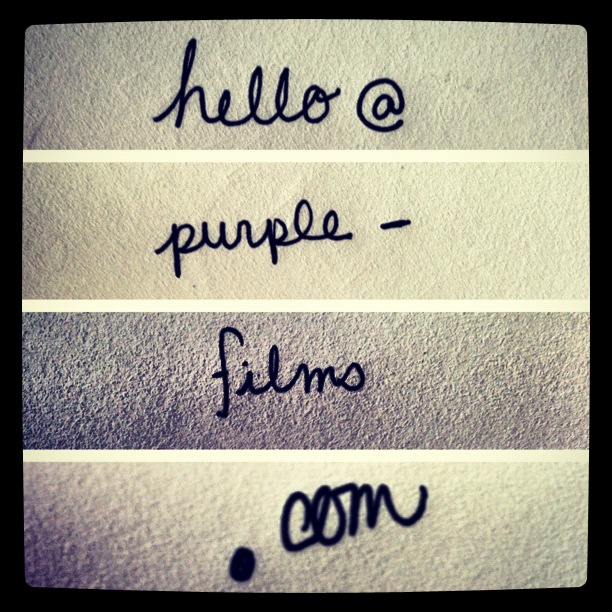 hello @
purple -
films
.com